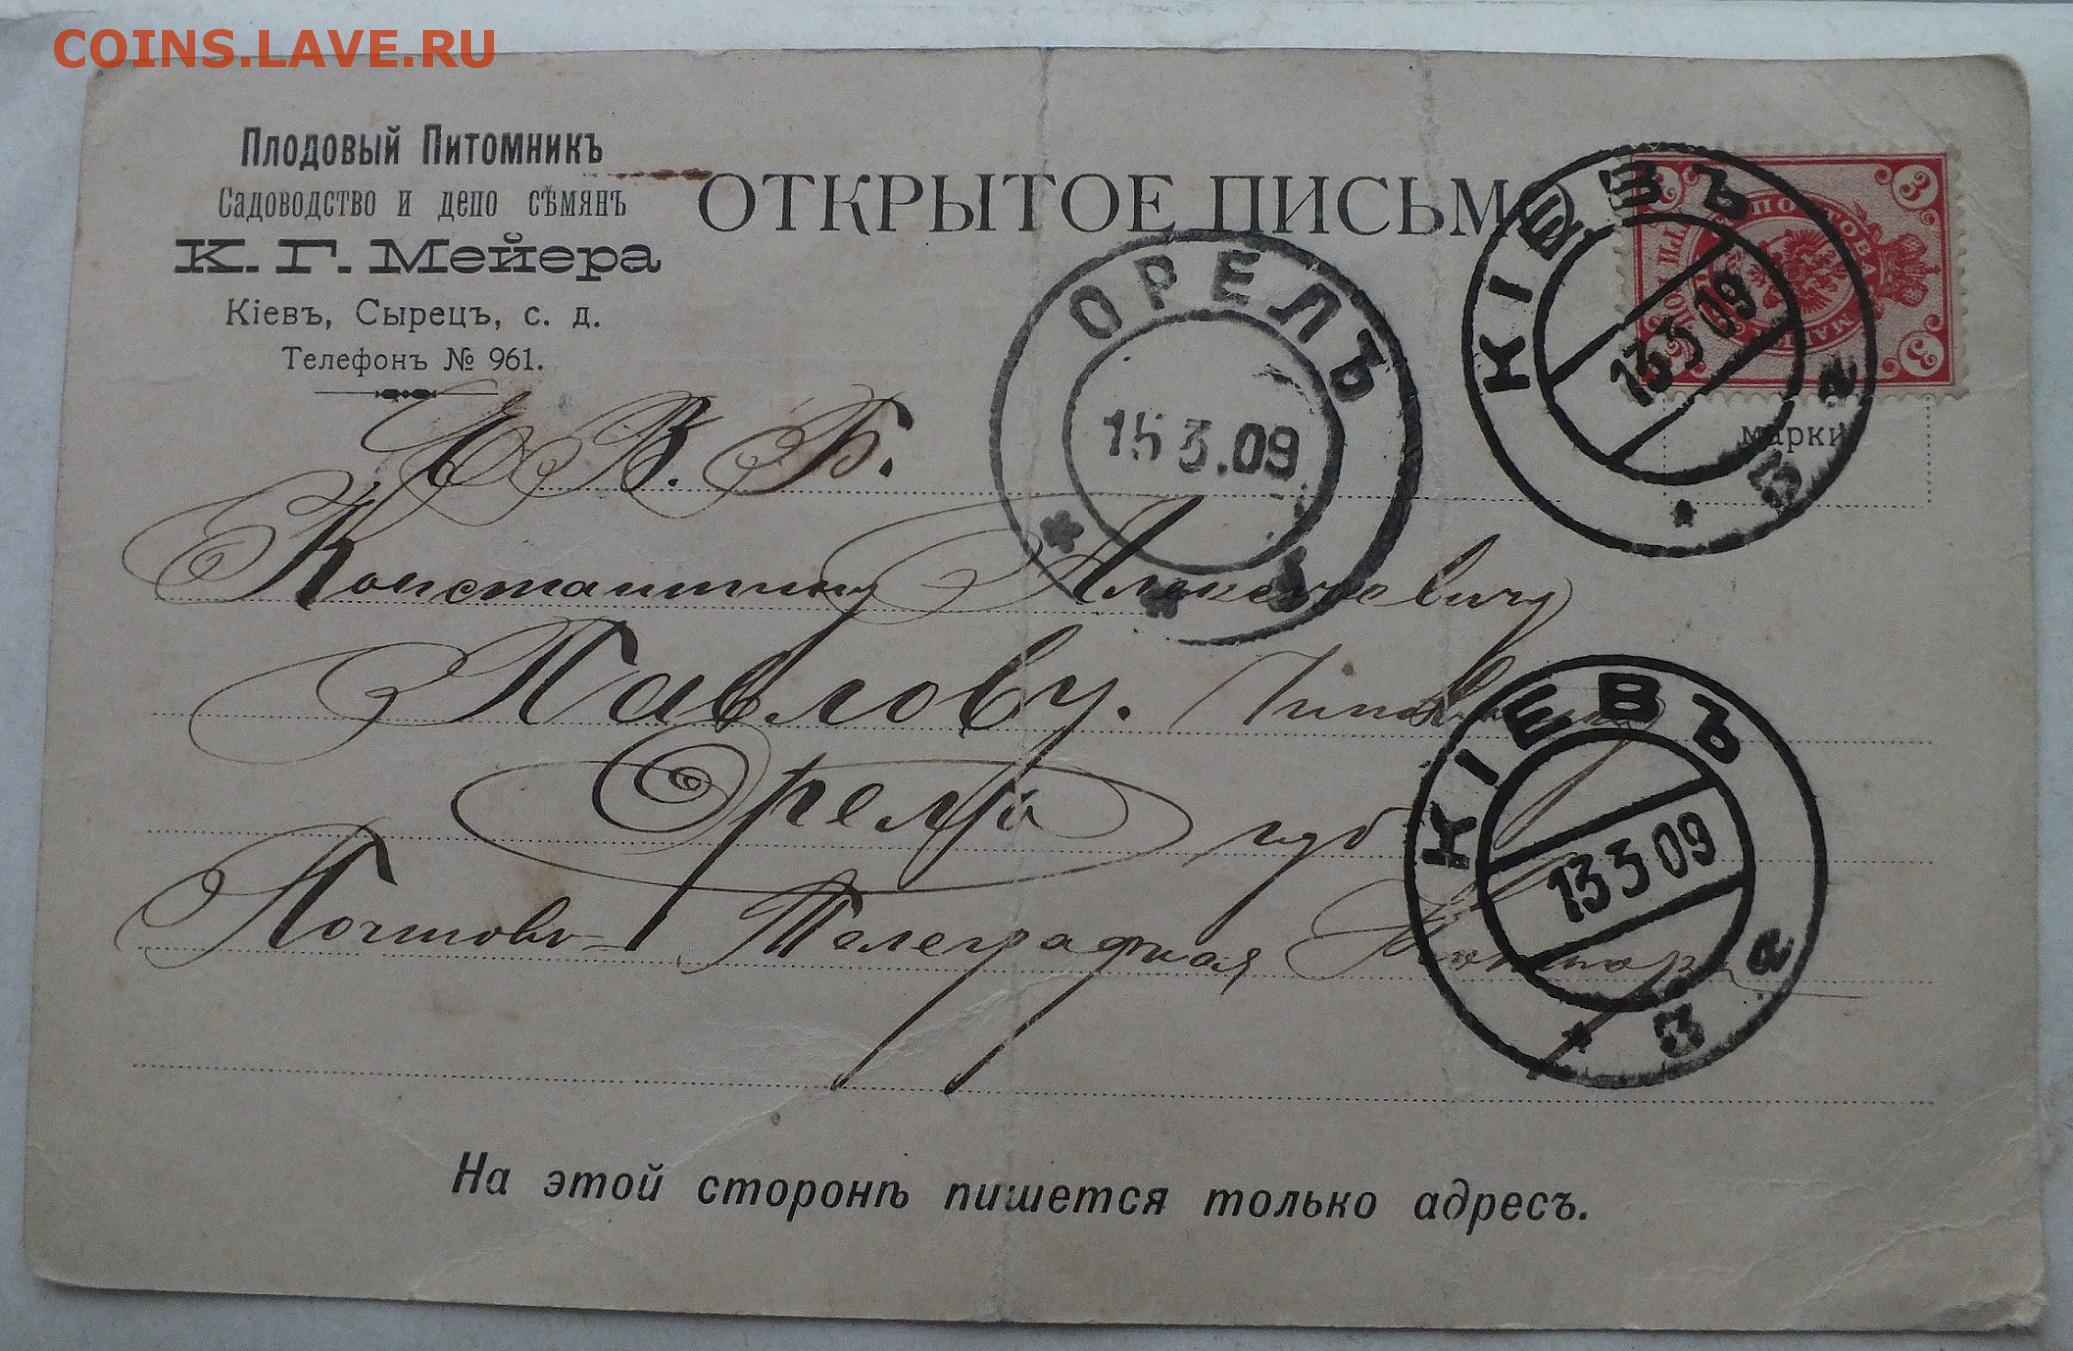 COINS.LAVE.RU
Плодовый Питомникъ
Садоводство и депо сѣмянъ
К. Г. Мейера
Кіевъ, Сырецъ, с. д.
Телефонъ № 961.
ОТКРЫТОЕ ПИСЬМО
КІЕВЪ
13 3 09
3 а
3
3
3
ПОЧТОВАЯ МАРКА
марки
ОРЕЛЪ
15 3.09
Е. В. Б.
Константину Алексѣевичу
Павлову.
Орелъ губ
Почтово-Телеграфная Контора
КІЕВЪ
13 3 09
3 а
На этой сторонѣ пишется только адресъ.